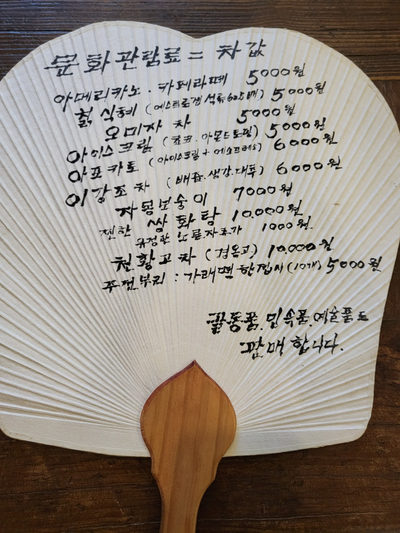 문화관람료 = 차값
아메리카노 · 카페라떼 5000원
칡 식혜 (에스트로겐 석류 625배) 5000원
오미자 차 5000원
아이스크림 (호두.아몬드토핑) 5000원
아포카토 (아이스크림 + 에스프레소) 6000원
이강조차 (배즙.생강.대추) 6000원
자몽보숭이 7000원
진한 쌍화탕 10,000원
유정란 노른자추가 1000원
천황고차 (경옥고) 10,000원
주전부리 : 가래떡 한접시 (10개) 5000원
골동품.민속품.예술품도
판매합니다.